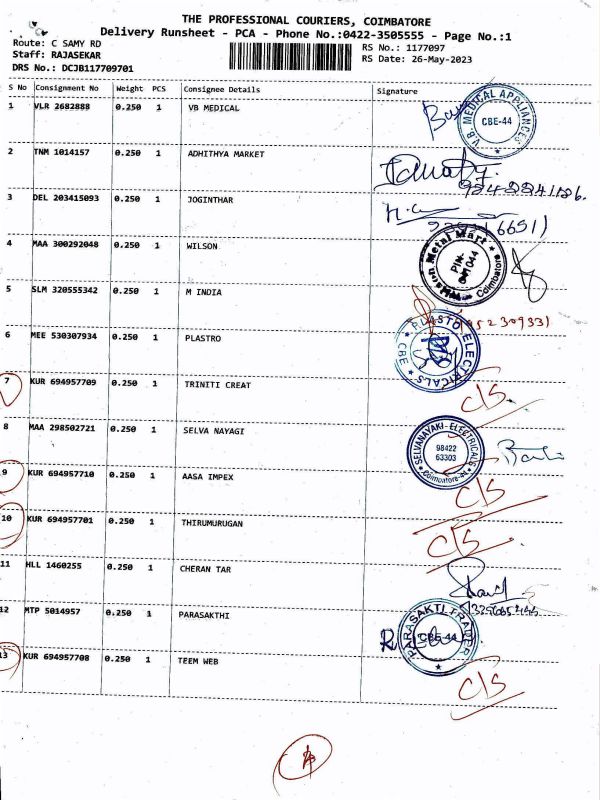 THE PROFESSIONAL COURIERS, COIMBATORE
Delivery Runsheet - PCA - Phone No.:0422-3505555 - Page No.:1
Route: C SAMY RD
Staff: RAJASEKAR
DRS No.: DCJB117709701
RS No.: 1177097
RS Date: 26-May-2023
S No Consignment No Weight PCS Consignee Details Signature
1 VLR 2682888 0.250 1 VB MEDICAL
V.B. MEDICAL APPLIANCES CBE-44
2 TNM 1014157 0.250 1 ADHITHYA MARKET
3 DEL 203415093 0.250 1 JOGINTHAR
4 MAA 300292048 0.250 1 WILSON
Metal Mart Coimbatore
5 SLM 320555342 0.250 1 M INDIA
6 MEE 530307934 0.250 1 PLASTRO
PLASTO ELECTRICALS CBE
7 KUR 694957709 0.250 1 TRINITI CREAT C/S
8 MAA 298502721 0.250 1 SELVA NAYAGI
SELVANAYAKI-ELECTRICALS 98422 63303
9 KUR 694957710 0.250 1 AASA IMPEX C/S
10 KUR 694957701 0.250 1 THIRUMURUGAN C/S
11 HLL 1460255 0.250 1 CHERAN TAR
12 MTP 5014957 0.250 1 PARASAKTHI
PARASAKTI TRADER CBE-44
13 KUR 694957708 0.250 1 TEEM WEB C/S